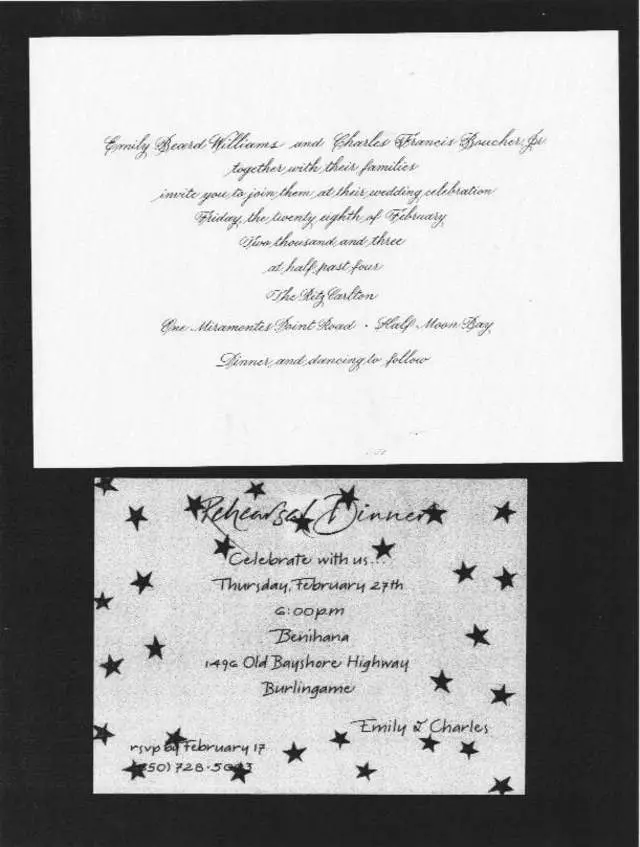 Emily Beard Williams and Charles Francis Boucher, Jr.
together with their families
invite you to join them at their wedding celebration
Friday, the twenty eighth of February
Two thousand and three
at half past four
The Ritz Carlton
One Miramontes Point Road · Half Moon Bay
Dinner and dancing to follow
Rehearsal Dinner
Celebrate with us...
Thursday, February 27th
6:00pm
Benihana
1496 Old Bayshore Highway
Burlingame
Emily & Charles
rsvp by February 17